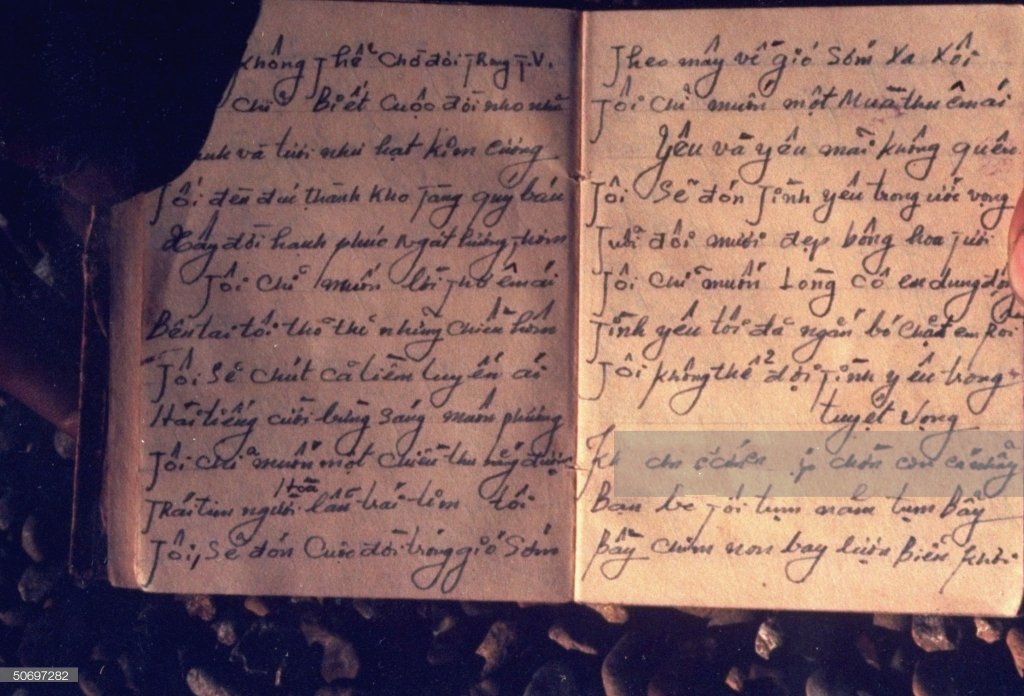 không Thể chờ đời Trong T.V.
chỉ Biết Cuộc đời nho nhỏ
và tươi như hạt Kim Cương
Tôi đến đuc thành Kho Tàng quý báu
Xây đời hạnh phúc ngát hương thơm
Tôi chỉ muốn lời thơ êm ái
Bên tai tôi thỏ thẻ những chiều hôm
Tôi Sẽ chút cả tiềm luyến ái
tiếng cười bừng sáng muôn phương
Tôi chỉ muốn một chiều thu nắng
Hoà
Trái tim người lẫn trái tim tôi
Tôi, Sẽ đón Cuộc đời trong gió Sớm
Theo mây về gió Sớm Xa Xôi
Tôi chỉ muốn một Mùa thu êm ái
Yêu và yêu mãi không quên
Tôi Sẽ đón Tình yêu trong ước vọng
Tuổi đôi mươi đẹp bông hoa Tươi
Tôi chỉ muốn Lòng cô em dung
Tình yêu tôi đã ngắn bó chặt em Rồi
Tôi không thể đợi Tình yêu trong
tuyệt vọng
Bạn bè Tôi tụm năm tụm Bẩy
Bầy chim non bay lượn Biển khơi
50697282